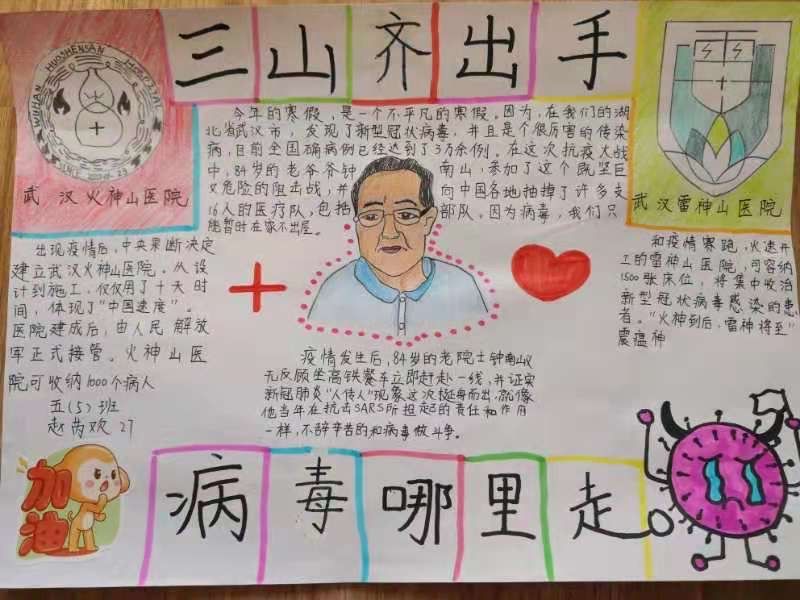 三山齐出手
WUHAN HUOSHENSAN HOSPITAL
武汉火神山医院
今年的寒假，是一个不平凡的寒假。因为，在我们的湖
北省武汉市，发现了新型冠状病毒，并且是个很厉害的传染
病，目前全国确病例已经达到了3万余例。在这次抗疫大战
中，84岁的老爷爷钟南山，参加了这个既坚巨
又危险的阻击战，并向中国各地抽掉了许多支
16人的医疗队，包括部队。因为病毒，我们只
能暂时在家不出屋。
武汉雷神山医院
出现疫情后，中央果断决定
建立武汉火神山医院。从设
计到施工，仅仅用了十天时
间，体现了“中国速度”。
医院建成后，由人民解放
军正式接管。火神山医
院可收纳1000个病人
五(5)班
赵芮欢 27
和疫情赛跑，火速开
工的雷神山医院，可容纳
1500张床位，将集中收治
新型冠状病毒感染的患
者。“火神到后，雷神将至”
震瘟神
疫情发生后，84岁的老院士钟南山义
无反顾坐高铁餐车立即赶赴一线，并证实
新冠肺炎“人传人”现象这次挺身而出，就像
他当年在抗击SARS所担起的责任和作用
一样，不辞辛苦的和病毒做斗争。
加油
病毒哪里走